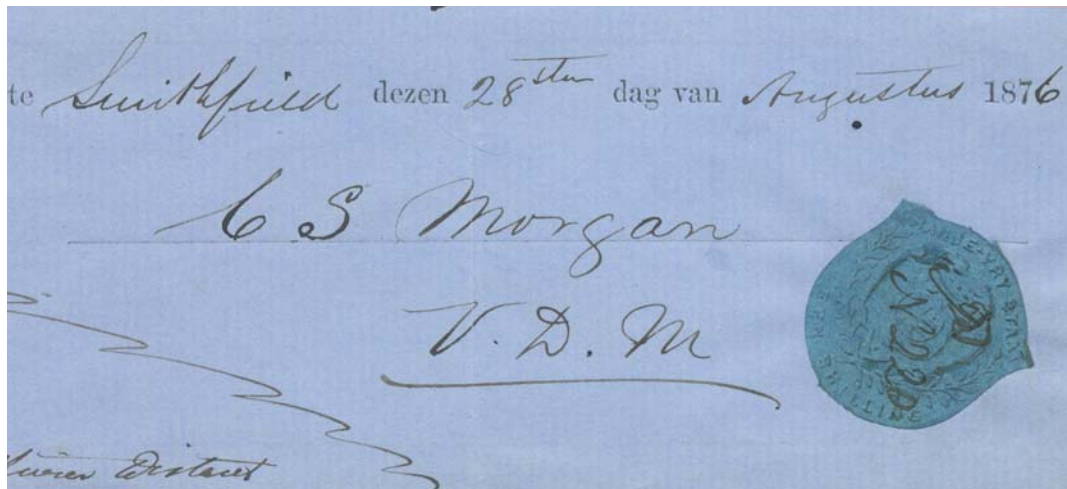 te Smithfield dezen 28sten dag van Augustus 1876
C S Morgan
V. D. M
ORANJE-VRY STAAT
EEN SHILLING
District